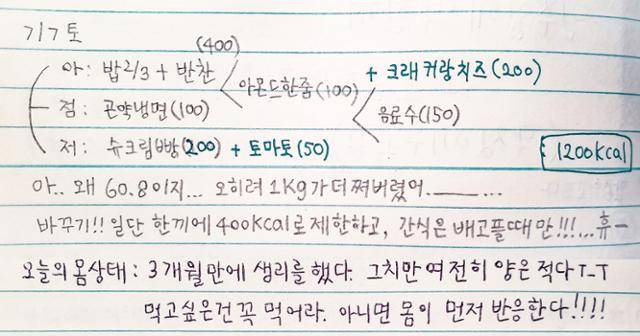 7/7 토
(400)
아: 밥2/3 + 반찬 < 아몬드한줌(100) + 크래커랑치즈(200)
점: 곤약냉면(100) < 음료수(150)
저: 슈크림빵(200) + 토마토(50)
1200kcal
아.. 왜 60.8이지... 오히려 1kg가 더 쪄버렸어.____...
바꾸기!! 일단 한끼에 400kcal로 제한하고, 간식은 배고플때만!!!...휴ㅡ
오늘의 몸상태 : 3개월만에 생리를 했다. 그치만 여전히 양은 적다 T_T
먹고싶은건 꼭 먹어라. 아니면 몸이 먼저 반응한다!!!!